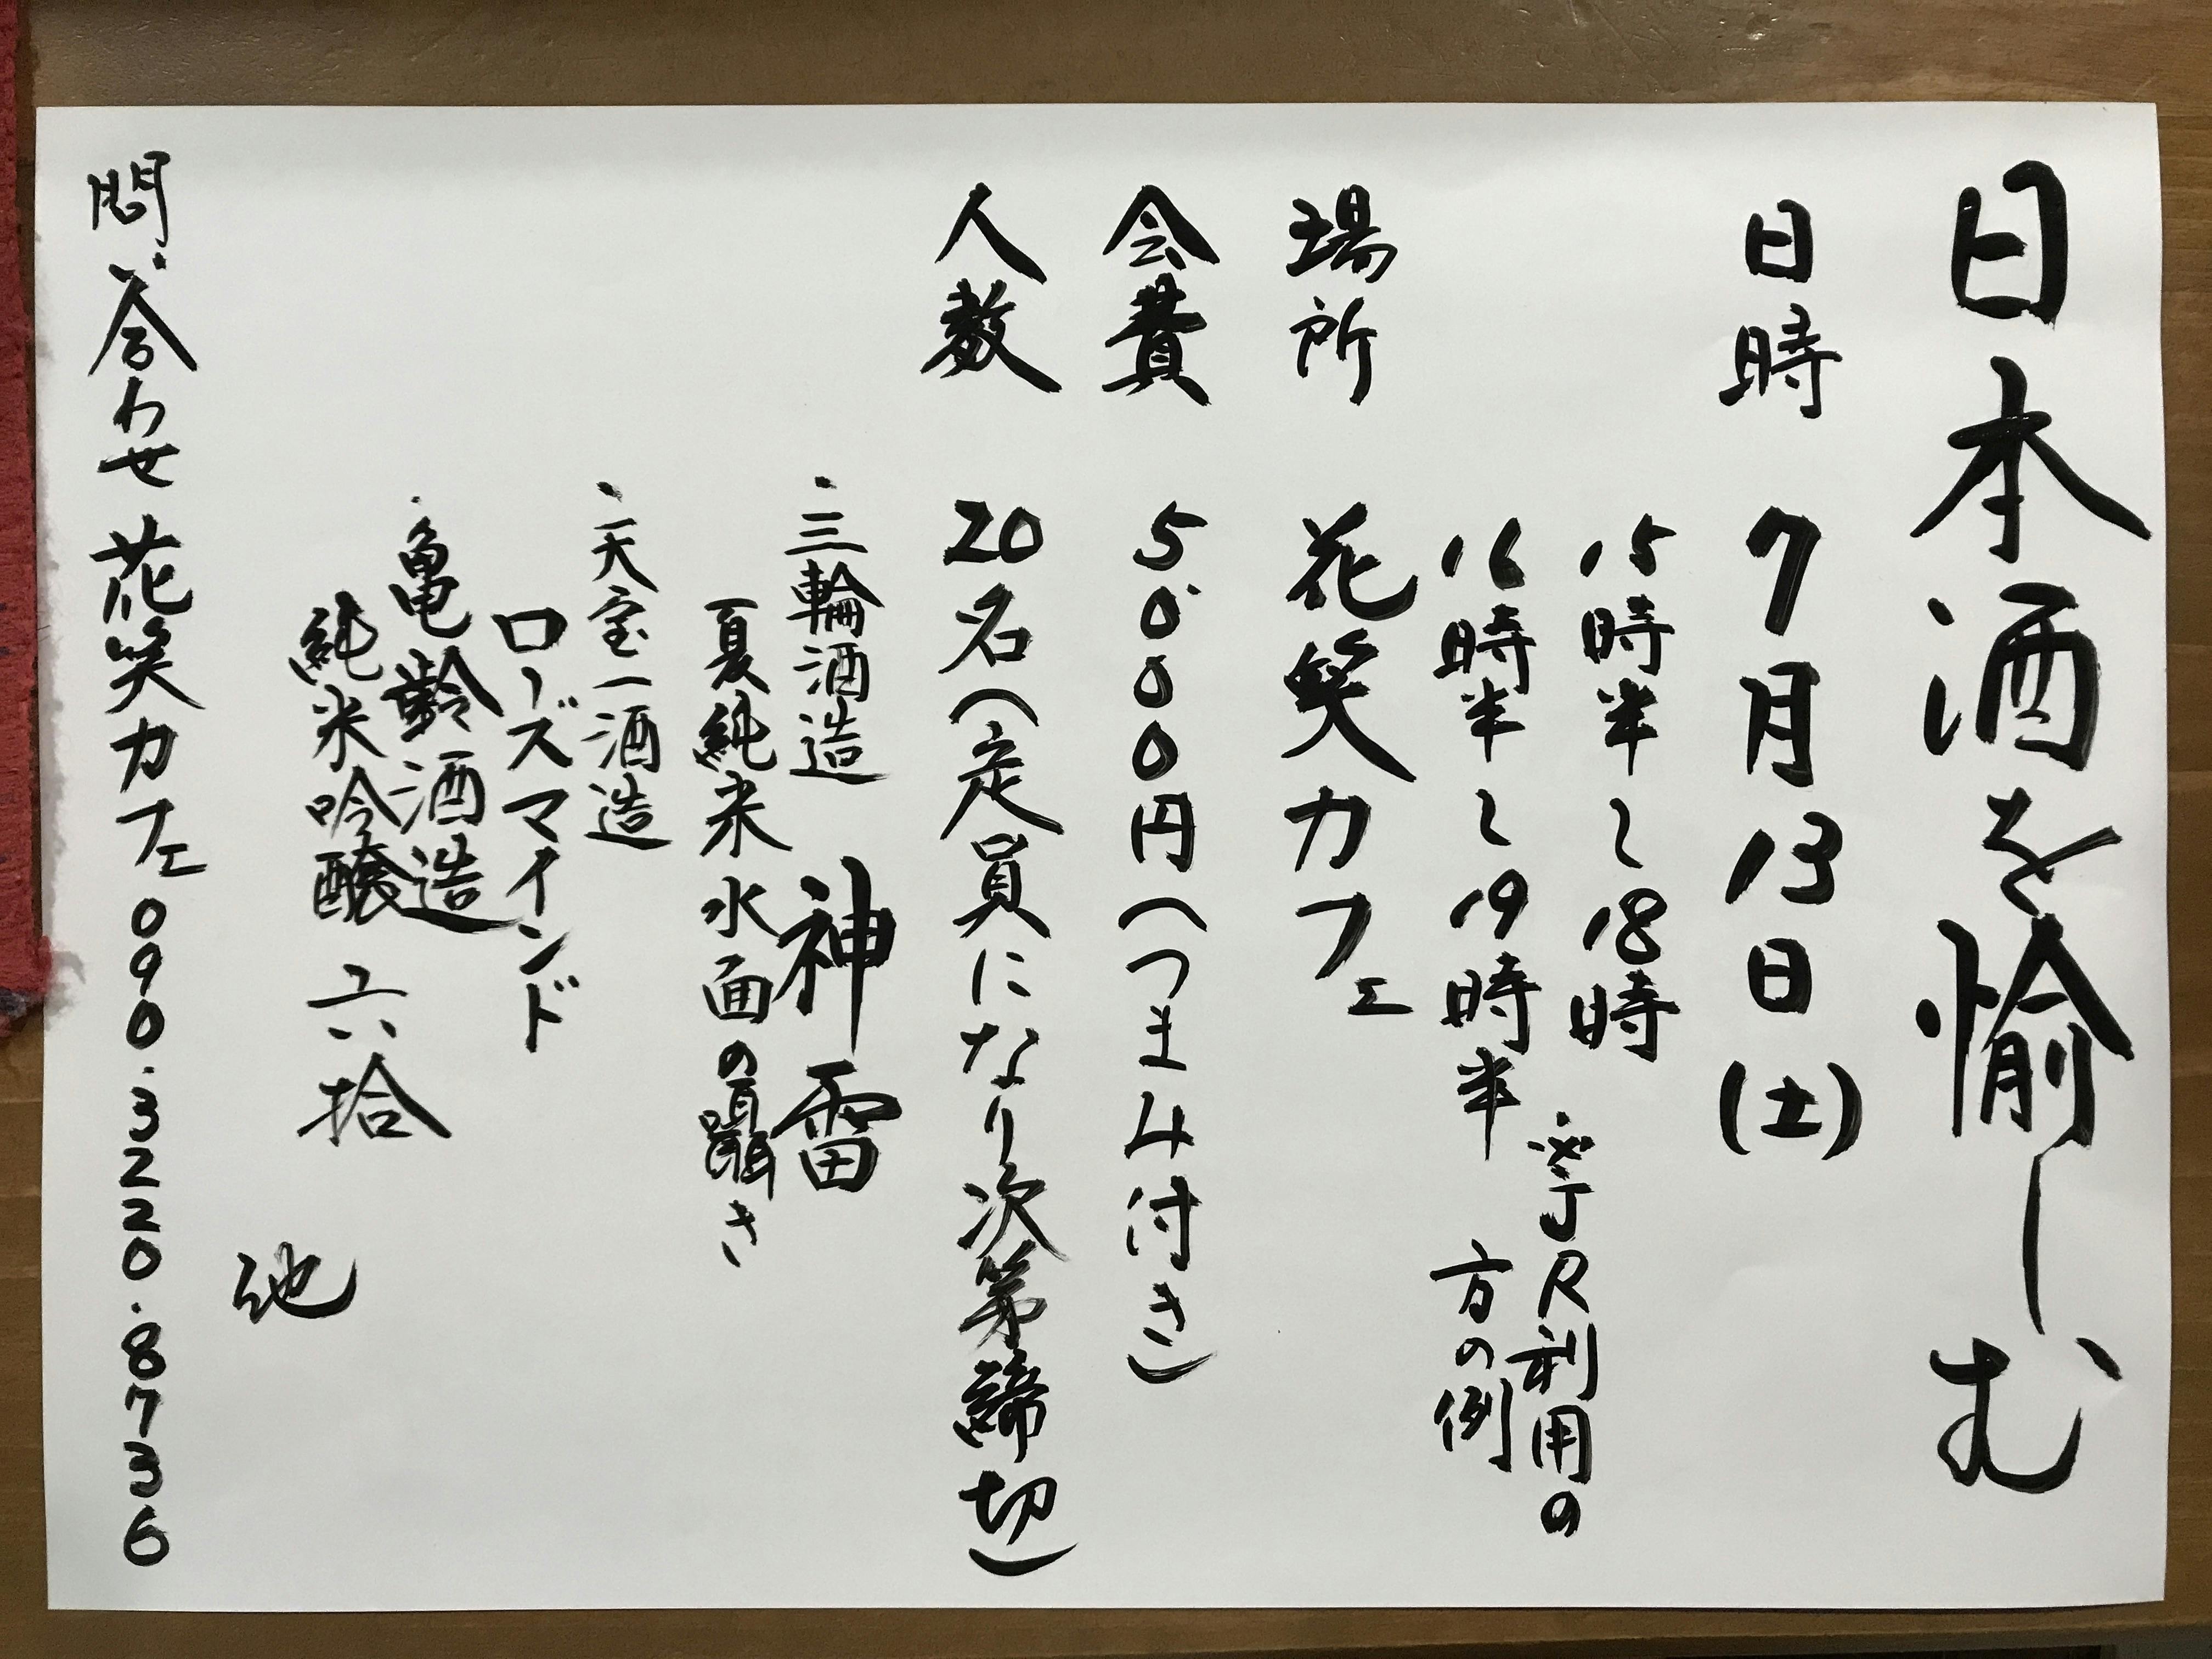 日本酒を愉しむ
日時 7月13日(土)
15時半〜18時
16時半〜19時半
※JR利用の
方の例
場所 花笑カフェ
会費 5000円(つまみ付き)
人数 20名(定員になり次第締切)
・三輪酒造 神雷
夏純米 水面の囁き
・天宝一酒造
ローズマインド
・亀齢酒造
純米吟醸 六拾
他
問い合わせ 花笑カフェ 090.3220.8736